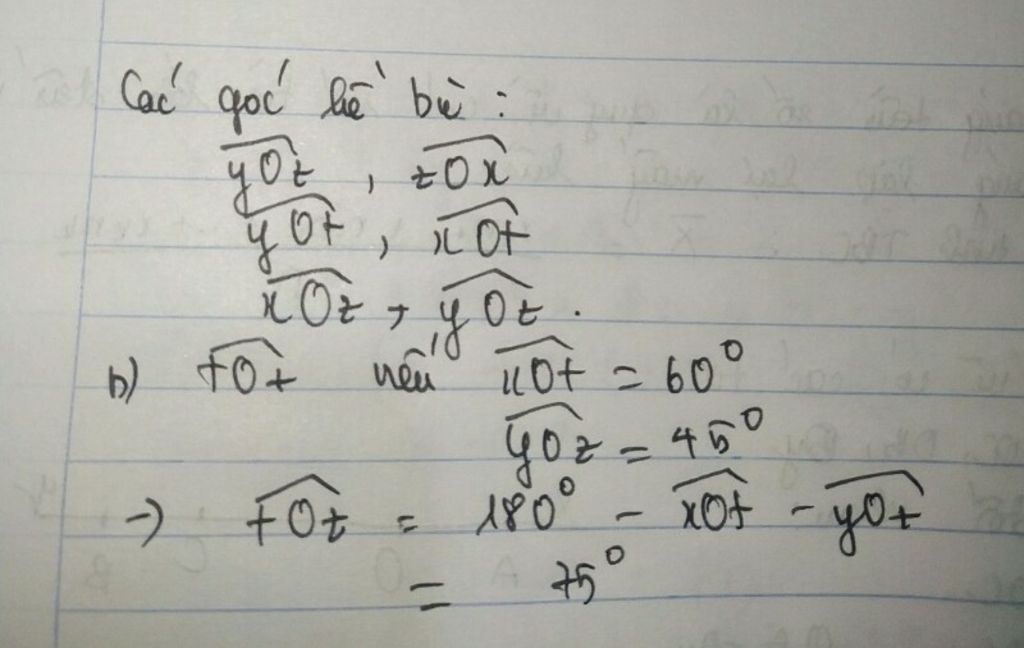 Các góc kề bù :
yOz , zOx
yOt , xOt
xOz , yOz .
b) tOz nếu xOt = 60°
yOz = 45°
-> tOz = 180° - xOt - yOz
= 75°